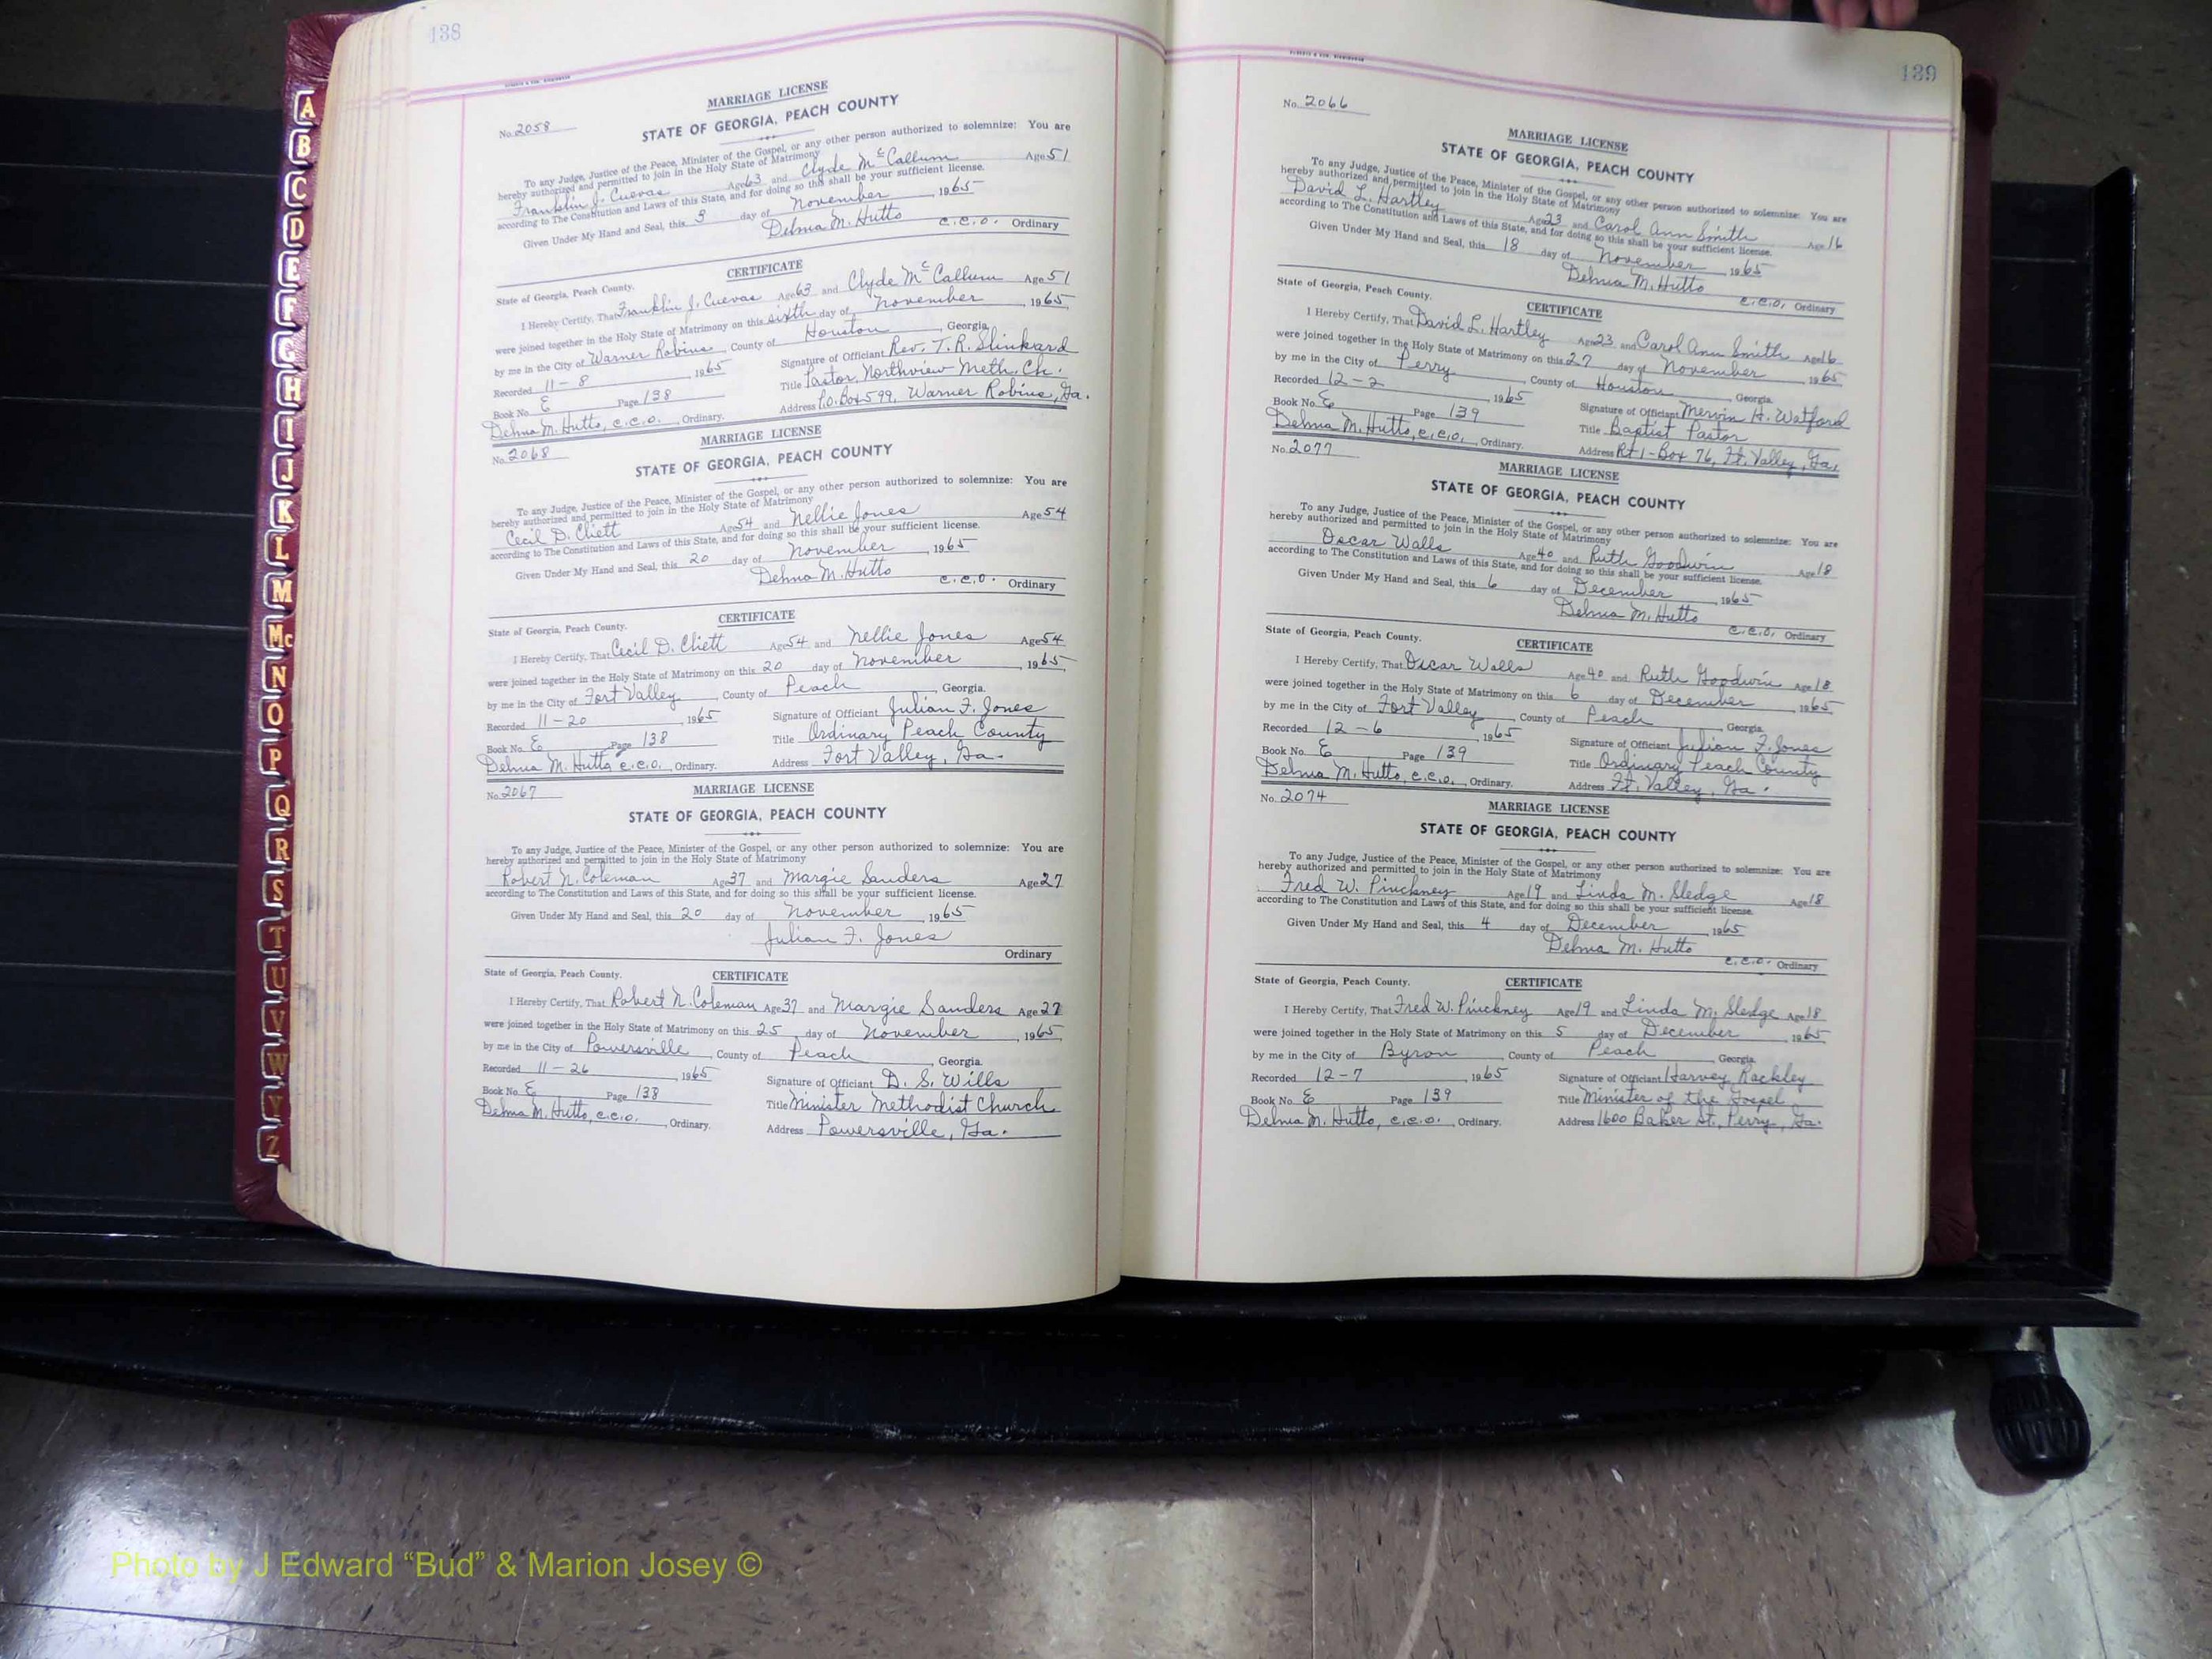 138
MARRIAGE LICENSE
No. 2058
STATE OF GEORGIA, PEACH COUNTY
To any Judge, Justice of the Peace, Minister of the Gospel, or any other person authorized to solemnize: You are
hereby authorized and permitted to join in the Holy State of Matrimony
Franklin J. Cuevas Age 63 and Clyde McCallum Age 51
according to The Constitution and Laws of this State, and for doing so this shall be your sufficient license.
Given Under My Hand and Seal, this 3 day of November, 1965
Delma M. Hutto C.C.O. Ordinary
CERTIFICATE
State of Georgia, Peach County.
I Hereby Certify, That Franklin J. Cuevas Age 63 and Clyde McCallum Age 51
were joined together in the Holy State of Matrimony on this sixth day of November, 1965
by me in the City of Warner Robins, County of Houston, Georgia.
Recorded 11-8, 1965
Signature of Officiant Rev. T. R. Slinkard
Book No. E Page 138
Title Pastor, Northview Meth. Ch.
Delma M. Hutto, C.C.O., Ordinary.
Address P.O. Box 599, Warner Robins, Ga.
MARRIAGE LICENSE
No. 2068
STATE OF GEORGIA, PEACH COUNTY
To any Judge, Justice of the Peace, Minister of the Gospel, or any other person authorized to solemnize: You are
hereby authorized and permitted to join in the Holy State of Matrimony
Cecil D. Chett Age 54 and Nellie Jones Age 54
according to The Constitution and Laws of this State, and for doing so this shall be your sufficient license.
Given Under My Hand and Seal, this 20 day of November, 1965
Delma M. Hutto C.C.O. Ordinary
CERTIFICATE
State of Georgia, Peach County.
I Hereby Certify, That Cecil D. Chett Age 54 and Nellie Jones Age 54
were joined together in the Holy State of Matrimony on this 20 day of November, 1965
by me in the City of Fort Valley, County of Peach, Georgia.
Recorded 11-20, 1965
Signature of Officiant Julian F. Jones
Book No. E Page 138
Title Ordinary Peach County
Delma M. Hutto C.C.O., Ordinary.
Address Fort Valley, Ga.
No. 2067
MARRIAGE LICENSE
STATE OF GEORGIA, PEACH COUNTY
To any Judge, Justice of the Peace, Minister of the Gospel, or any other person authorized to solemnize: You are
hereby authorized and permitted to join in the Holy State of Matrimony
Robert N. Coleman Age 37 and Margie Sanders Age 27
according to The Constitution and Laws of this State, and for doing so this shall be your sufficient license.
Given Under My Hand and Seal, this 20 day of November, 1965
Julian F. Jones
Ordinary
State of Georgia, Peach County.
CERTIFICATE
I Hereby Certify, That Robert N. Coleman Age 37 and Margie Sanders Age 27
were joined together in the Holy State of Matrimony on this 25 day of November, 1965
by me in the City of Powersville, County of Peach, Georgia.
Recorded 11-26, 1965
Signature of Officiant D. S. Wills
Book No. E Page 138
Title Minister Methodist Church
Delma M. Hutto, C.C.O., Ordinary.
Address Powersville, Ga.
139
No. 2066
MARRIAGE LICENSE
STATE OF GEORGIA, PEACH COUNTY
To any Judge, Justice of the Peace, Minister of the Gospel, or any other person authorized to solemnize: You are
hereby authorized and permitted to join in the Holy State of Matrimony
David L. Hartley Age 23 and Carol Ann Smith Age 16
according to The Constitution and Laws of this State, and for doing so this shall be your sufficient license.
Given Under My Hand and Seal, this 18 day of November, 1965
Delma M. Hutto
C.C.O. Ordinary
State of Georgia, Peach County.
CERTIFICATE
I Hereby Certify, That David L. Hartley Age 23 and Carol Ann Smith Age 16
were joined together in the Holy State of Matrimony on this 27 day of November, 1965
by me in the City of Perry, County of Houston, Georgia.
Recorded 12-2, 1965
Signature of Officiant Mervin H. Watford
Book No. E Page 139
Title Baptist Pastor
Delma M. Hutto, C.C.O., Ordinary.
Address Rt 1-Box 76, Ft. Valley, Ga.
No. 2077
MARRIAGE LICENSE
STATE OF GEORGIA, PEACH COUNTY
To any Judge, Justice of the Peace, Minister of the Gospel, or any other person authorized to solemnize: You are
hereby authorized and permitted to join in the Holy State of Matrimony
Oscar Walls Age 40 and Ruth Goodwin Age 18
according to The Constitution and Laws of this State, and for doing so this shall be your sufficient license.
Given Under My Hand and Seal, this 6 day of December, 1965
Delma M. Hutto
C.C.O. Ordinary
State of Georgia, Peach County.
CERTIFICATE
I Hereby Certify, That Oscar Walls Age 40 and Ruth Goodwin Age 18
were joined together in the Holy State of Matrimony on this 6 day of December, 1965
by me in the City of Fort Valley, County of Peach, Georgia.
Recorded 12-6, 1965
Signature of Officiant Julian F. Jones
Book No. E Page 139
Title Ordinary Peach County
Delma M. Hutto, C.C.O., Ordinary.
Address Ft. Valley, Ga.
No. 2074
MARRIAGE LICENSE
STATE OF GEORGIA, PEACH COUNTY
To any Judge, Justice of the Peace, Minister of the Gospel, or any other person authorized to solemnize: You are
hereby authorized and permitted to join in the Holy State of Matrimony
Fred W. Pinckney Age 19 and Linda M. Sledge Age 18
according to The Constitution and Laws of this State, and for doing so this shall be your sufficient license.
Given Under My Hand and Seal, this 4 day of December, 1965
Delma M. Hutto
C.C.O. Ordinary
State of Georgia, Peach County.
CERTIFICATE
I Hereby Certify, That Fred W. Pinckney Age 19 and Linda M. Sledge Age 18
were joined together in the Holy State of Matrimony on this 5 day of December, 1965
by me in the City of Byron, County of Peach, Georgia.
Recorded 12-7, 1965
Signature of Officiant Harvey Rackley
Book No. E Page 139
Title Minister of the Gospel
Delma M. Hutto, C.C.O., Ordinary.
Address 1600 Baker St., Perry, Ga.
A
B
C
D
E
F
G
H
I
J
K
L
M
Mc
N
O
P
Q
R
S
T
U
V
W
Y
Z
Photo by J Edward “Bud” & Marion Josey ©